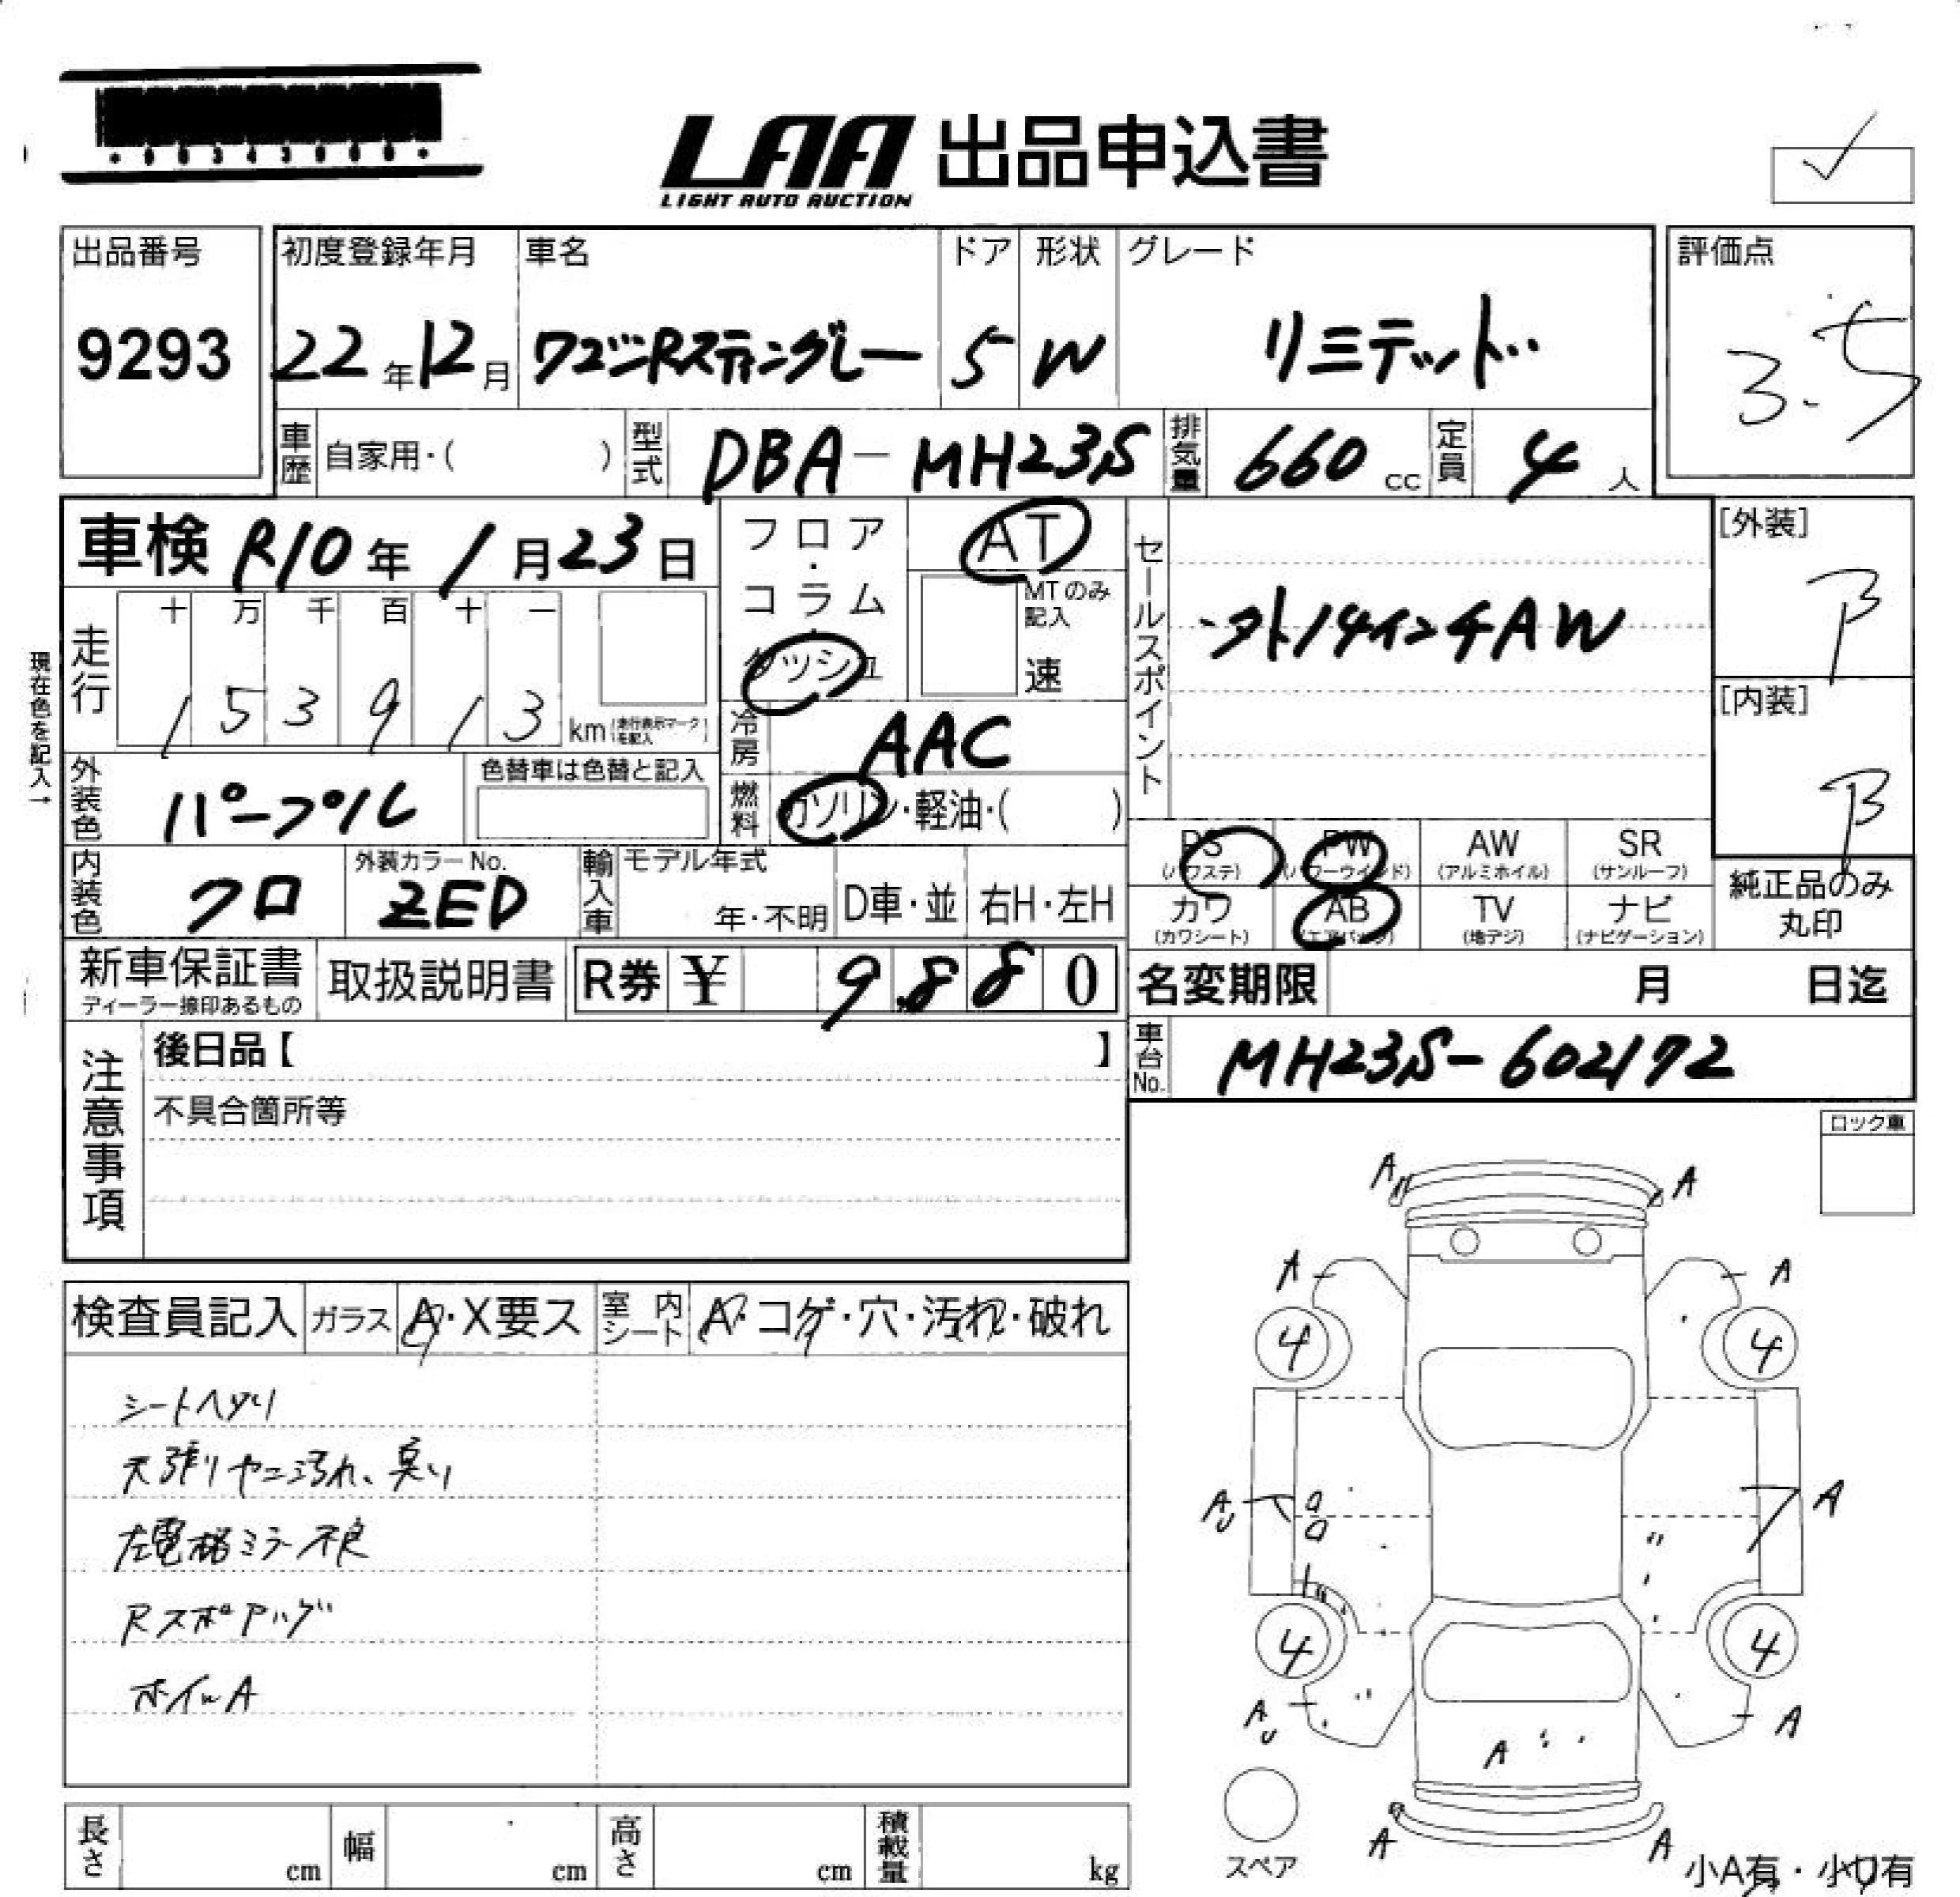 LAA 出品申込書
LIGHT AUTO AUCTION
出品番号
9293
初度登録年月
22年12月
車名
ワゴンRスティングレー
ドア
5
形状
W
グレード
リミテッド
評価点
3.5
車歴 自家用・( )
型式 DBA-MH23S
排気量 660 cc
定員 4 人
車検 R10年 1月23日
フロア・コラム・ダッシュ
AT
MTのみ記入
速
セールスポイント
・外14インチAW
[外装]
B
[内装]
B
現在色を記入→
走行
十 万 千 百 十 一
1 5 3 9 1 3 km(走行表示マークを記入)
冷房 AAC
燃料 ガソリン・軽油・( )
外装色 パープル
色替車は色替と記入
内装色 クロ
外装カラーNo.
ZED
輸入車
モデル年式
年・不明
D車・並
右H・左H
PS
(パワステ)
PW
(パワーウインド)
AW
(アルミホイル)
SR
(サンルーフ)
カワ
(カワシート)
AB
(エアバッグ)
TV
(地デジ)
ナビ
(ナビゲーション)
純正品のみ
丸印
新車保証書
ディーラー捺印あるもの
取扱説明書
R券 ¥ 9,880
名変期限 月 日迄
車台No. MH23S-602172
注意事項
後日品【 】
不具合箇所等
ロック車
検査員記入
ガラス A・X要ス
室内シート A・コゲ・穴・汚れ・破れ
シートヘタリ
天張りヤニ汚れ、臭い
左電格ミラー不良
Rスポアンダ
ホイルA
A A
A A
4 4
AU A
4 4
AU A
A
A A
スペア
小A有・小U有
長さ cm
幅 cm
高さ cm
積載量 kg